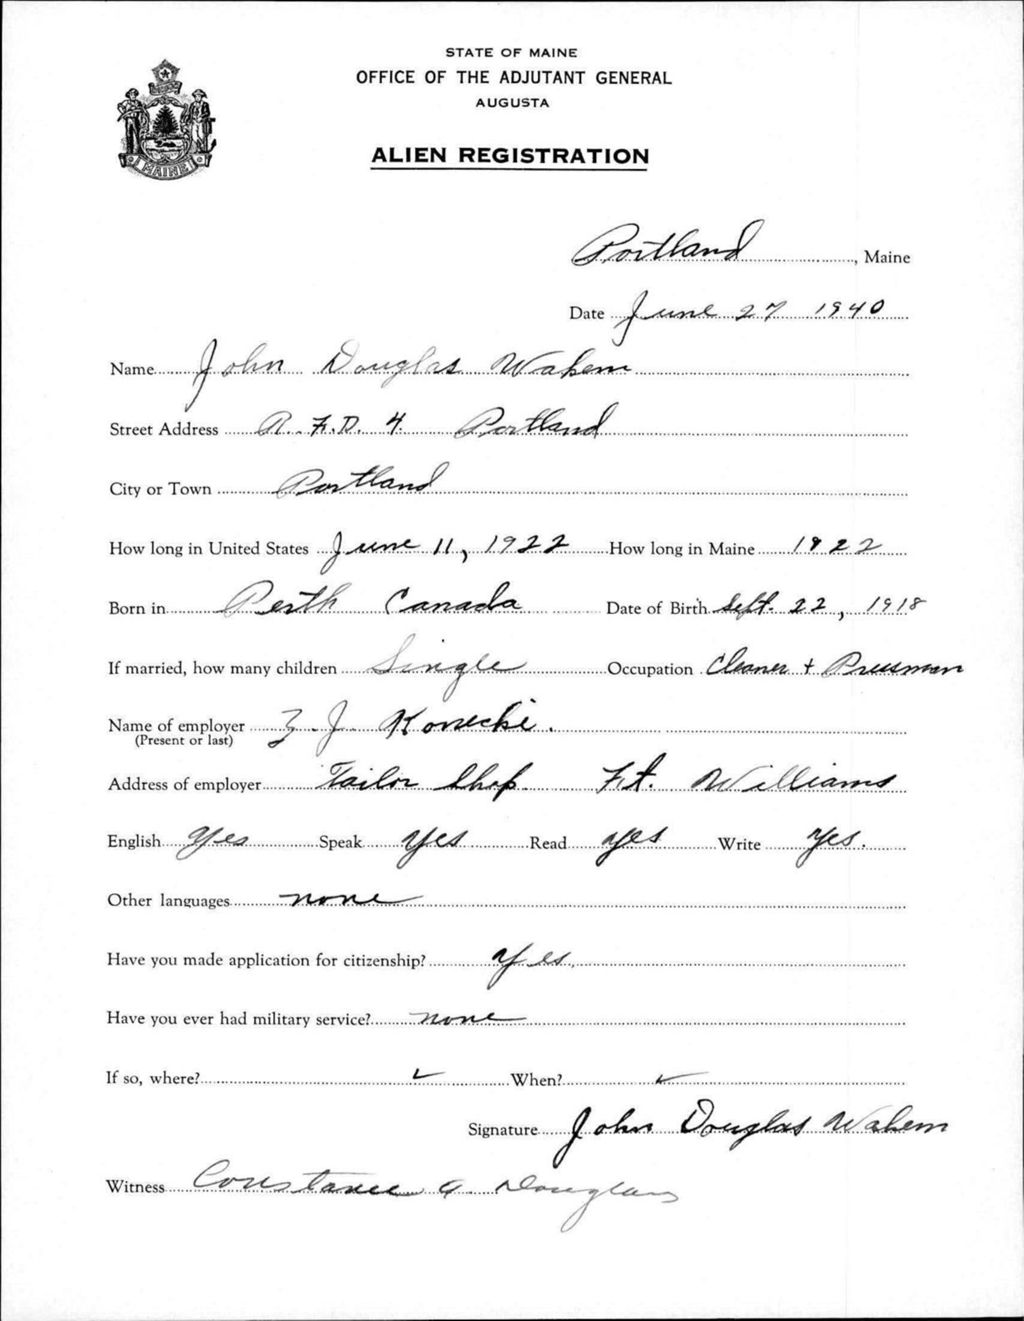 STATE OF MAINE
OFFICE OF THE ADJUTANT GENERAL
AUGUSTA
ALIEN REGISTRATION
MAINE
Portland, Maine
Date June 27 1940
Name John Douglas Wahem
Street Address R.F.D. 4 Portland
City or Town Portland
How long in United States June 11, 1922 How long in Maine 1922
Born in Perth Canada Date of Birth Sept. 22, 1918
If married, how many children Single Occupation Cleaner + Pressman
Name of employer Z. J. Konecki.
(Present or last)
Address of employer Tailor Shop. Ft. Williams
English Yes Speak Yes Read Yes Write Yes.
Other languages none
Have you made application for citizenship? Yes.
Have you ever had military service? none
If so, where? ✓ When? ✓
Signature John Douglas Wahem
Witness Constance A. Douglass